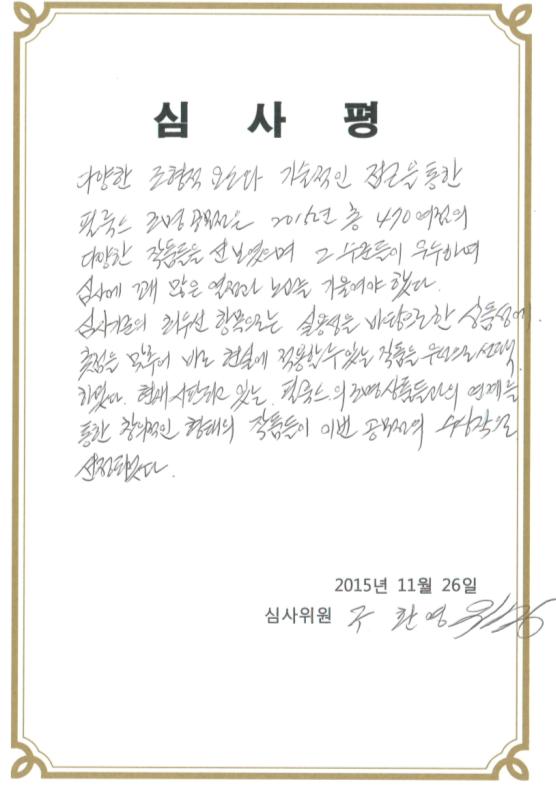 심 사 평
다양한 조형적 요소와 기술적인 접근을 통한
필룩스 조명 공모전은 2015년 총 470여점의
다양한 작품들을 선보였으며 그 수준들이 우수하며
심사에 꽤 많은 열정과 노력을 기울여야 했다.
심사기준의 최우선 항목으로는 실용성을 바탕으로한 상품성에
촛점을 맞추어 바로 현실에 적용할수있는 작품을 우선으로 선택
하였다. 현재 시판하고 있는 필룩스의 조명상품들과의 연계를
통한 창의적인 형태의 작품들이 이번 공모전의 수상작으로
선정되었다.
2015년 11월 26일
심사위원 구 환 영